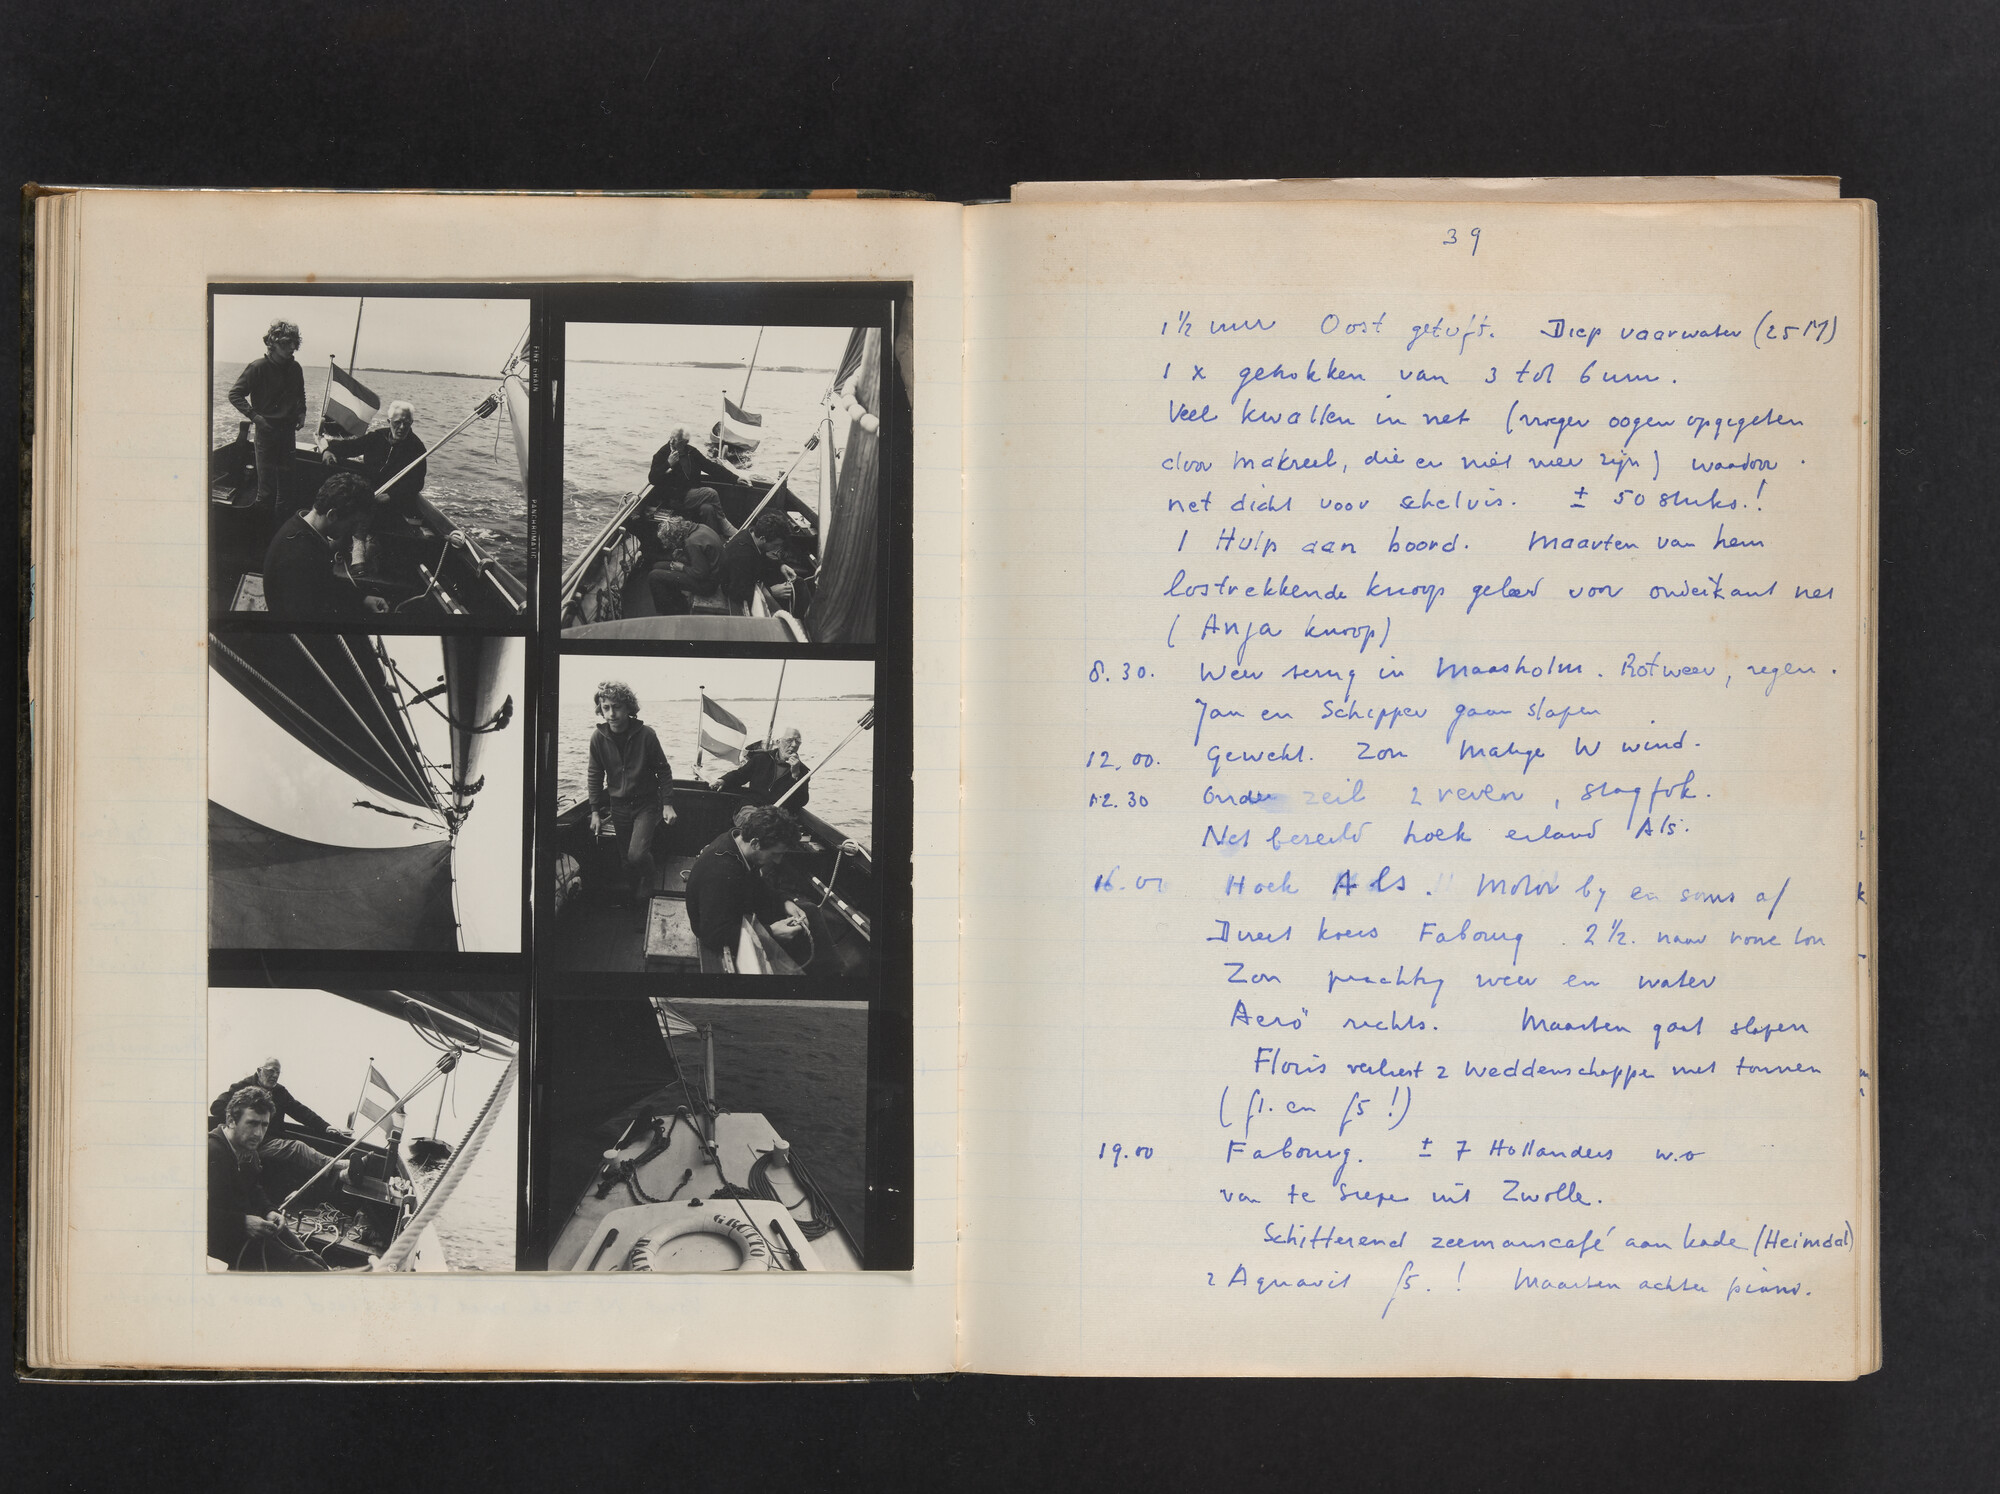 FINE GRAIN
PANCHROMATIC
GRUTTO
39
1½ uur Oost getuft. Diep vaarwater (25 M)
1 x getrokken van 3 tot 6 uur.
Veel kwallen in net (vroeger oogen opgegeten
door makreel, die er niet meer zijn) waardoor
net dicht voor schelvis. ± 50 stuks.!
1 Hulp aan boord. Maarten van hem
lostrekkende knoop geleerd voor onderkant net
(Anja knoop)
8.30. Weer terug in Maasholm. Rotweer, regen.
Jan en Schipper gaan slapen
12.00. Gewekt. Zon Matige W wind.
12.30 Onder zeil 2 reven, stagfok.
Net bezeild hoek eiland Als.
16.00 Hoek Als. Motor by en soms af
Direct koers Fabourg. 2½. naar rone ton
Zon prachtig weer en water
Aerö rechts. Maarten gaat slapen
Floris verliest 2 weddenschappe met tonnen
(f1. en f5!)
19.00 Fabourg. ± 7 Hollanders w.o
van te Siepe uit Zwolle.
Schitterend zeemanscafé aan kade (Heimdal)
2 Aquavit f5.! Maarten achter piano.